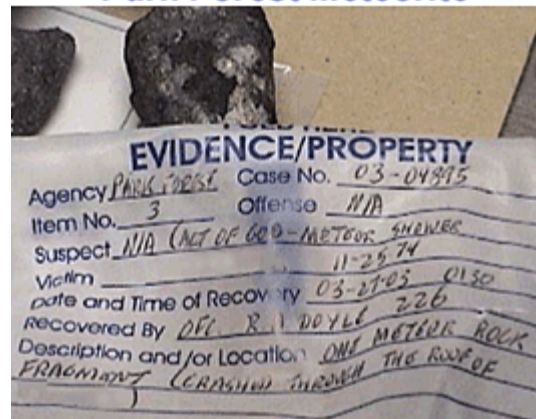 EVIDENCE/PROPERTY
Agency PARK FOREST Case No. 03-04895
Item No. 3 Offense N/A
Suspect N/A (ACT OF GOD - METEOR SHOWER
11-25 74
Victim
Date and Time of Recovery 03-27-03 0130
Recovered By OFC. R. DOYLE 226
Description and/or Location ONE METEOR ROCK
FRAGMENT (CRASHED THROUGH THE ROOF OF
)